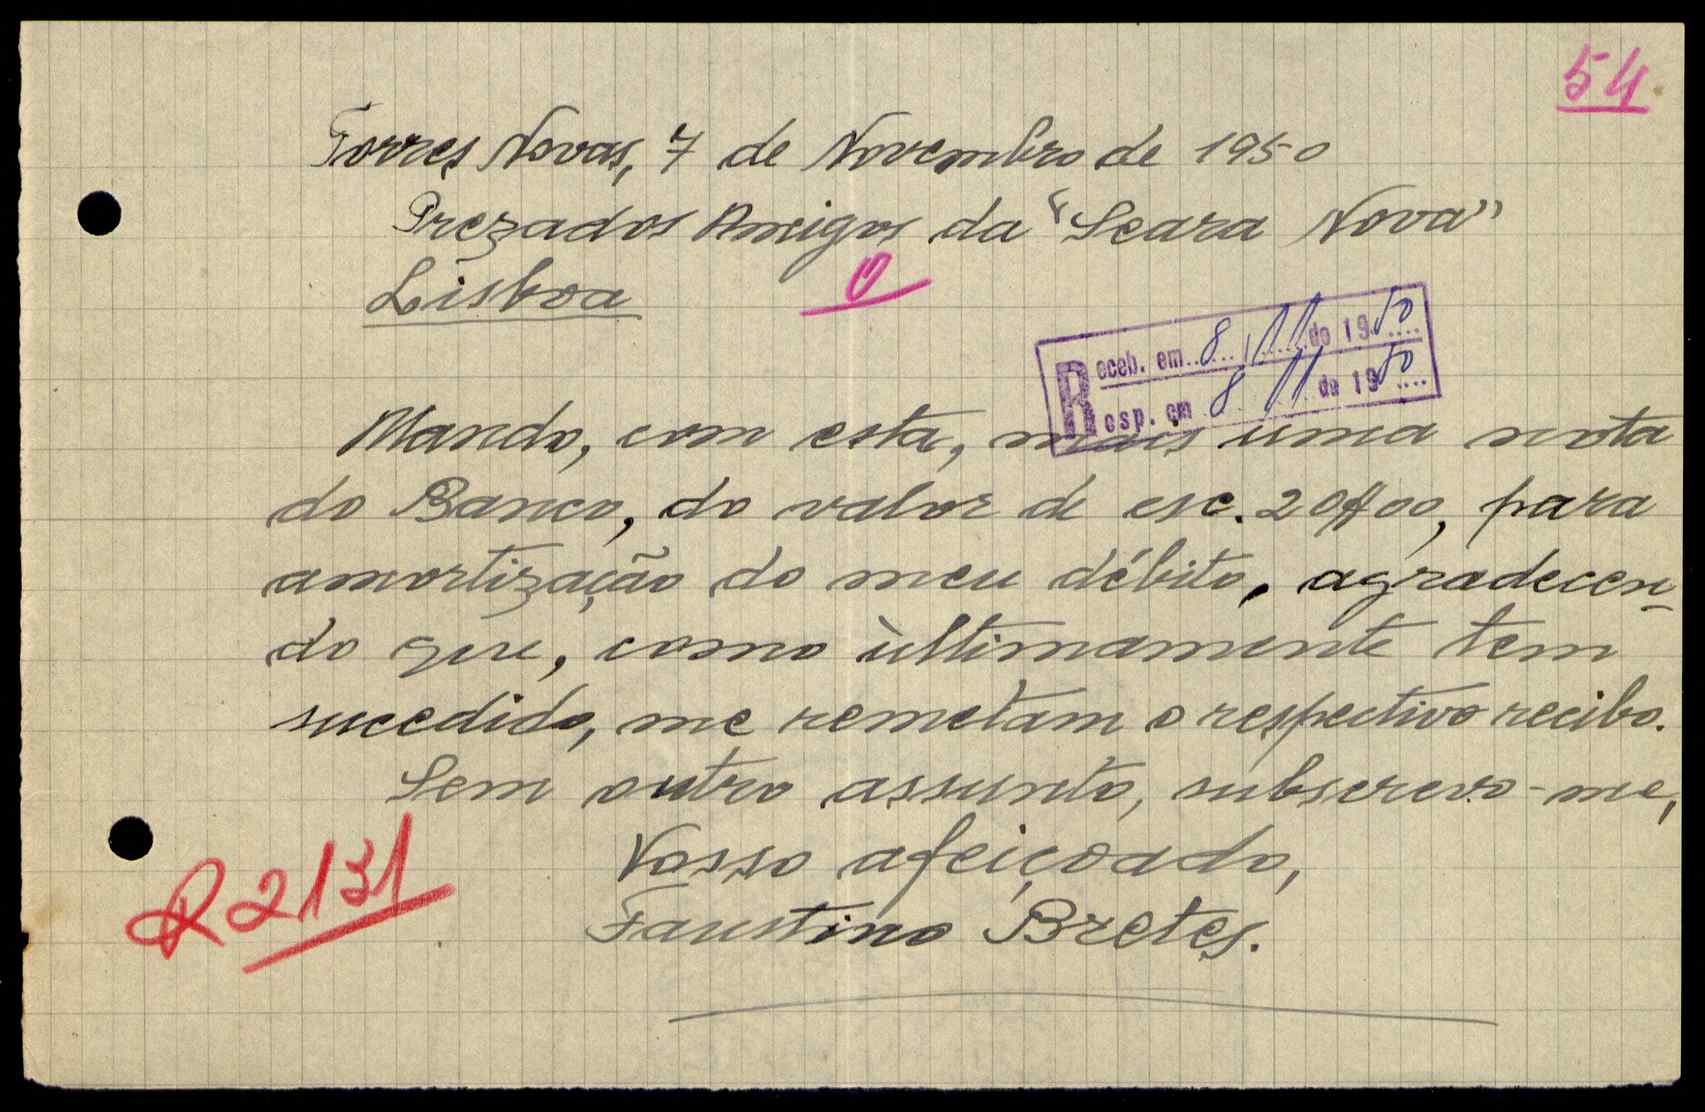 54
Torres Novas, 7 de Novembro de 1950
Prezados Amigos da "Seara Nova"
Lisboa
Receb. em 8 / 11 de 1950
Resp. em 8 11 de 1950
Mando, com esta, mais uma nota
do Banco, do valor de esc. 20$00, para
amortização do meu débito, agradecen-
do que, como ùltimamente tem
sucedido, me remetam o respectivo recibo.
Sem outro assunto, subscrevo-me,
Vosso afeiçoado,
Faustino Bretes.
R 2131